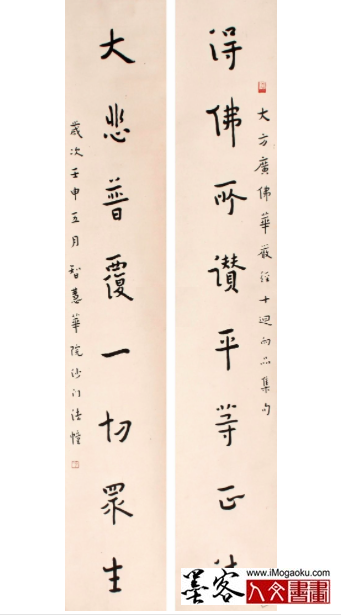 大方廣佛華嚴經十迴向品集句
得佛所讚平等正
大悲普覆一切眾生
歲次壬申五月智慧華院沙门法幢
墨客
www.iMogaoku.com
人文書畫